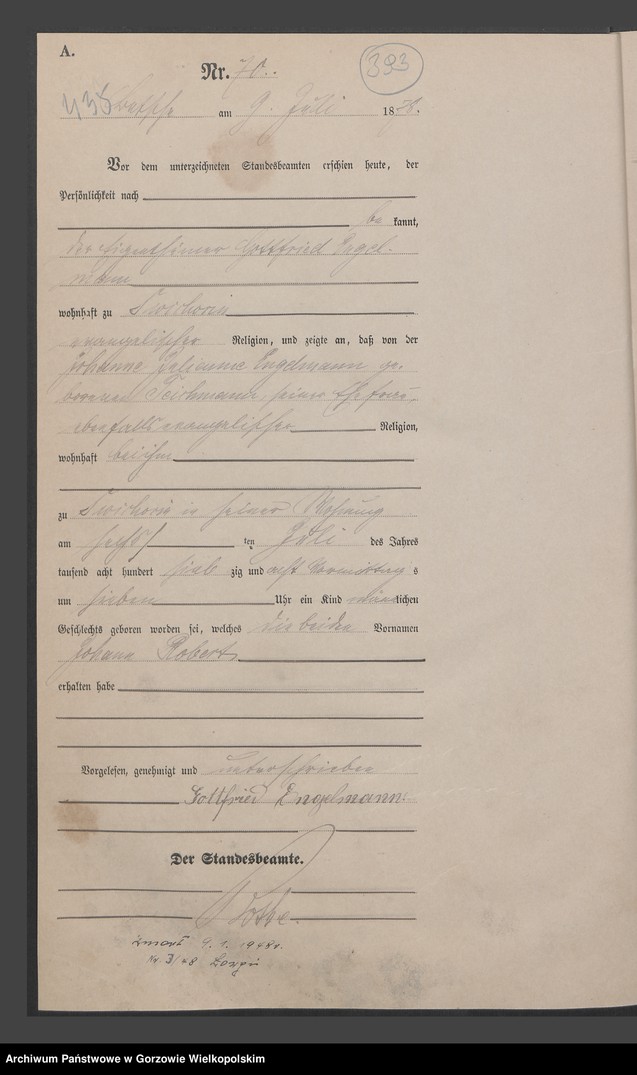 A.
Nr. 70.
393
435 Betsche am 9. Juli 1878.
Vor dem unterzeichneten Standesbeamten erschien heute, der
Persönlichkeit nach
be kannt,
der Eigenthümer Gottfried Engel-
mann
wohnhaft zu
evangelischer Religion, und zeigte an, daß von der
Johanne Engelmann ge-
borenen Teichmann, seiner Ehefrau,
ebenfalls evangelischer Religion,
wohnhaft bei ihm
zu in seiner Wohnung
am sechs ten Juli des Jahres
tausend acht hundert sieb zig und acht Vormittag s
um sieben Uhr ein Kind männlichen
Geschlechts geboren worden sei, welches die beiden Vornamen
Johann Robert
erhalten habe
Vorgelesen, genehmigt und unterschrieben
Gottfried Engelmann.
Der Standesbeamte.
zmarł 9.1.1948r.
Nr. 3/48
Archiwum Państwowe w Gorzowie Wielkopolskim